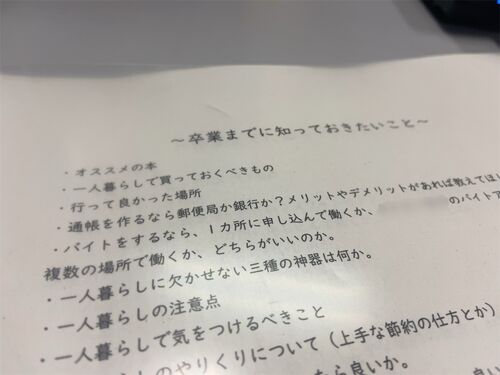 ～卒業までに知っておきたいこと～
・オススメの本
・一人暮らしで買っておくべきもの
・行って良かった場所
・通帳を作るなら郵便局か銀行か？メリットやデメリットがあれば教えてほし
・バイトをするなら、1カ所に申し込んで働くか、 のバイトア
複数の場所で働くか、どちらがいいのか。
・一人暮らしに欠かせない三種の神器は何か。
・一人暮らしの注意点
・一人暮らしで気をつけるべきこと
しのやりくりについて（上手な節約の仕方とか）
ら良いか。